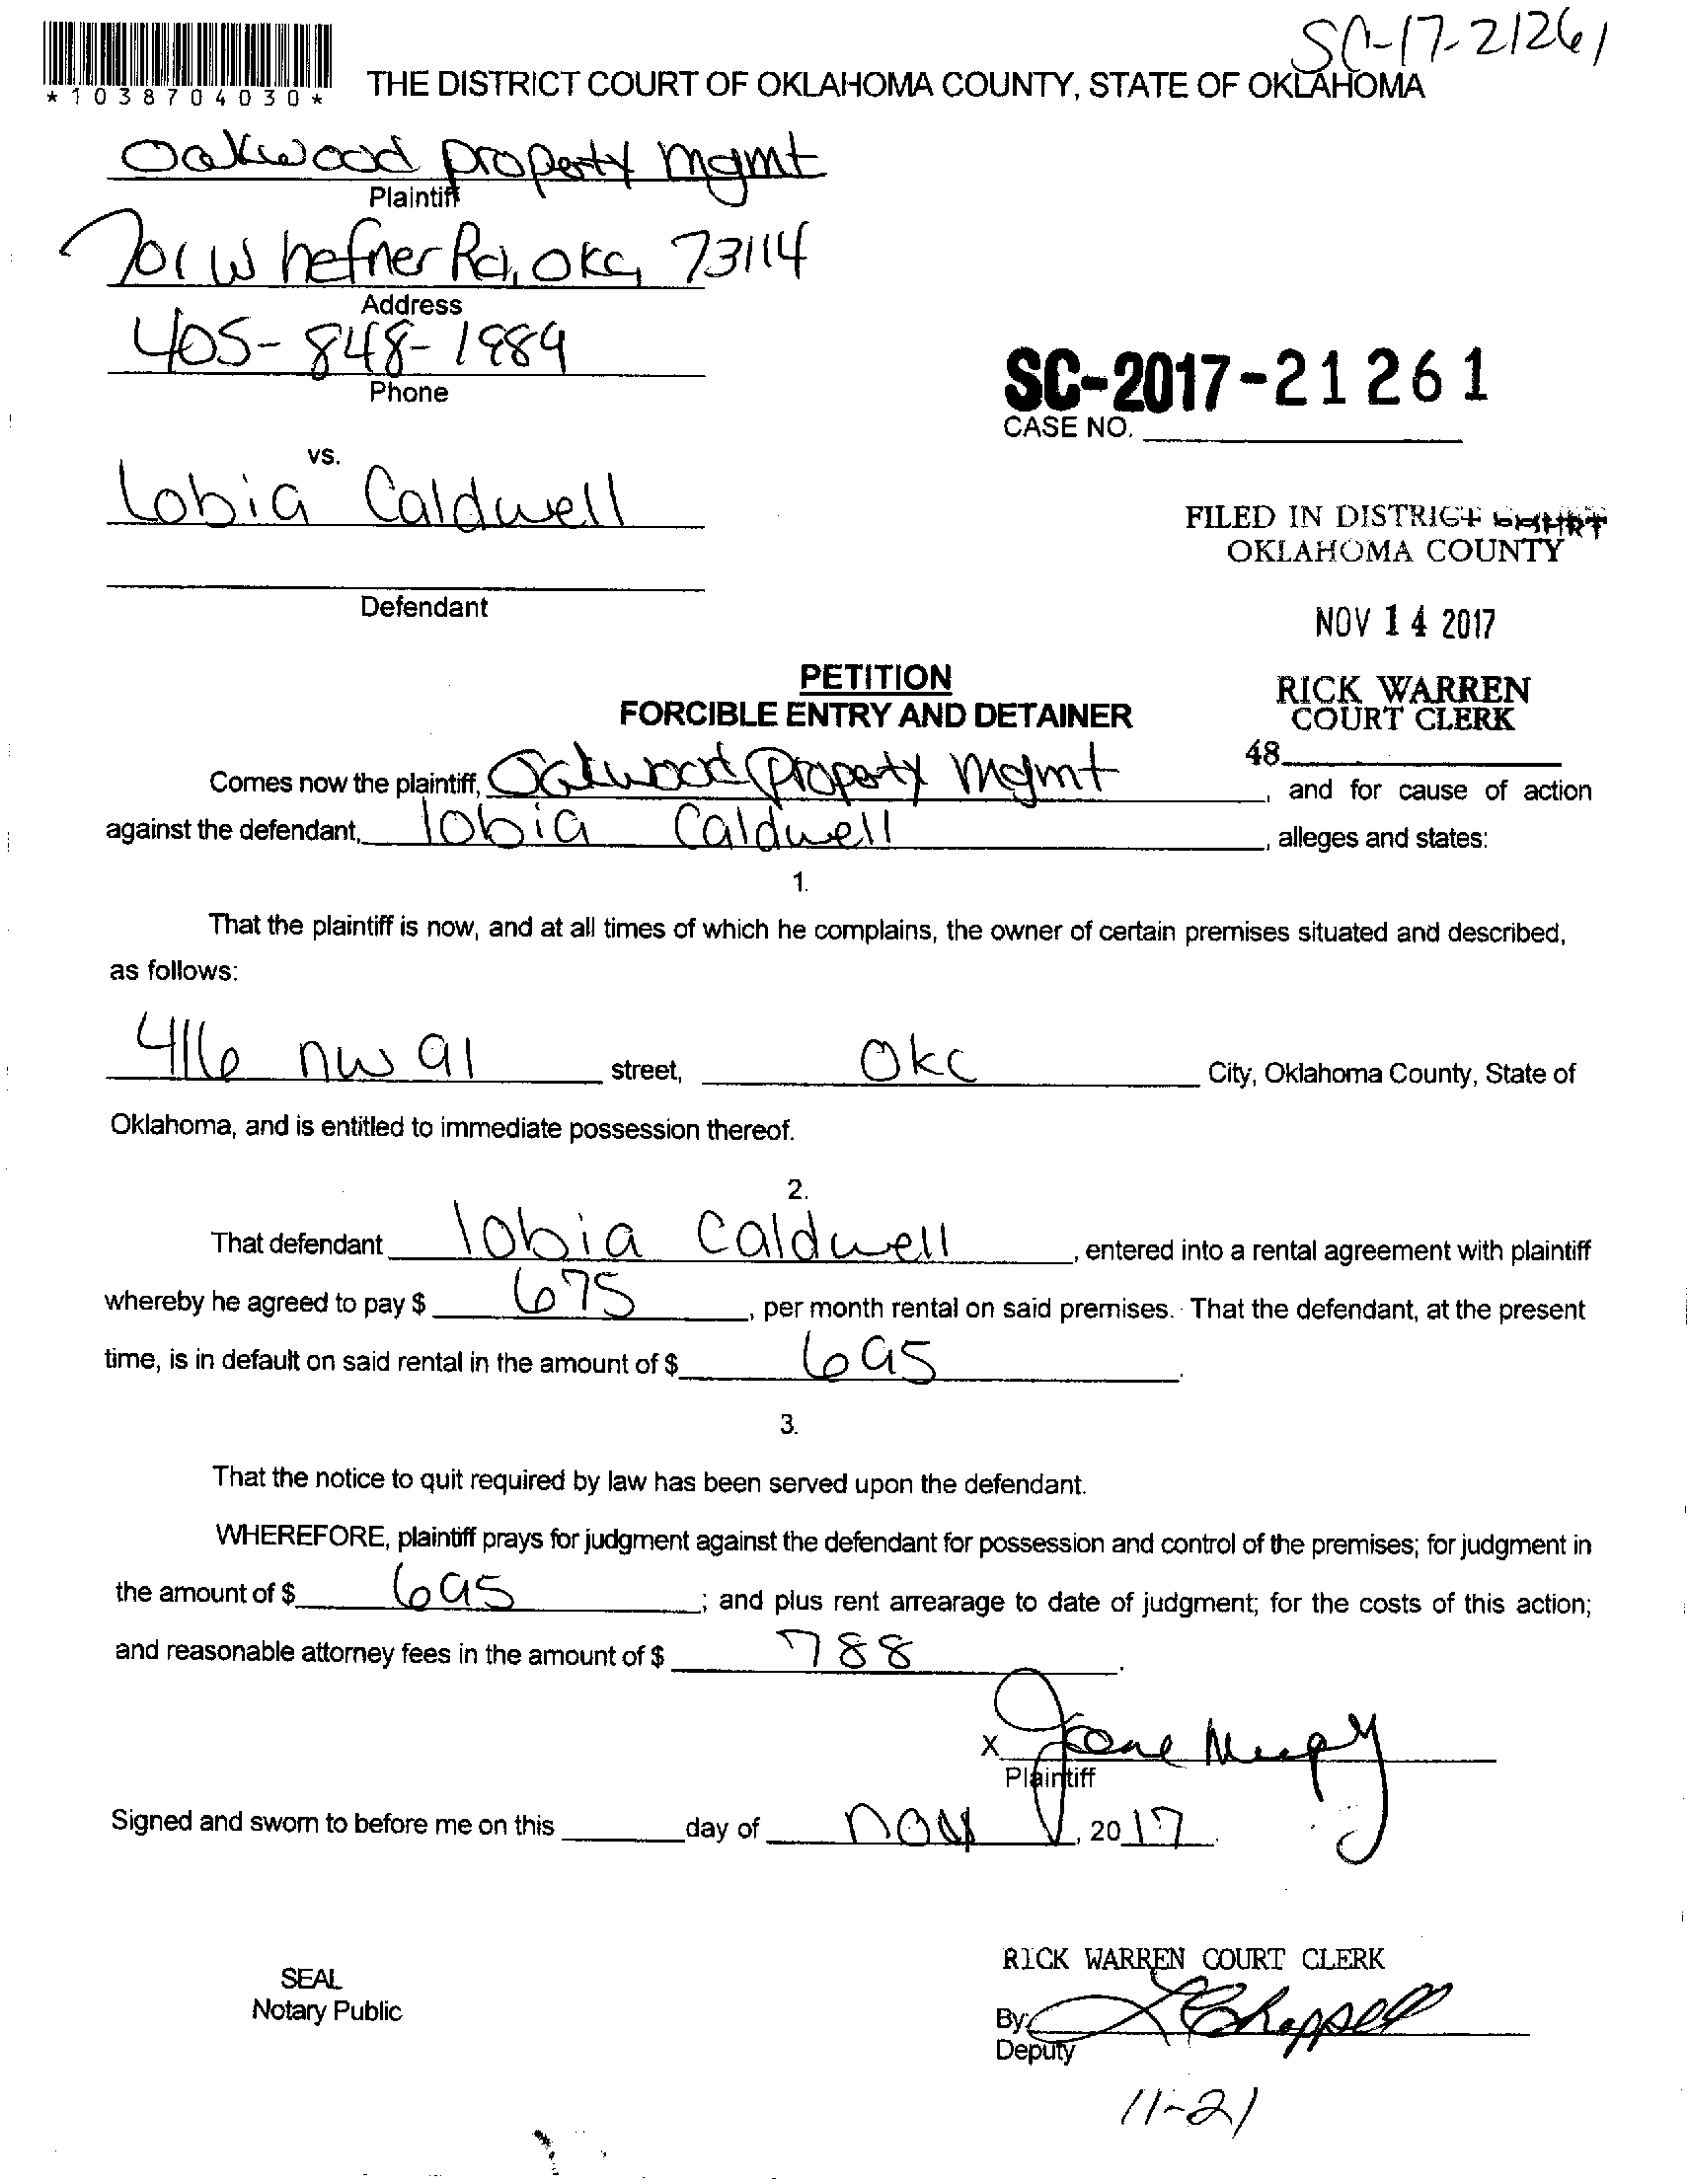 SC-17-21261
*1038704030*
THE DISTRICT COURT OF OKLAHOMA COUNTY, STATE OF OKLAHOMA
Oakwood property mgmt
Plaintiff
701 W hefner Rd, OKC, 73114
Address
405-848-1989
Phone
SC-2017-21261
CASE NO.
vs.
Lobia Caldwell
FILED IN DISTRICT COURT
OKLAHOMA COUNTY
Defendant
NOV 14 2017
PETITION
FORCIBLE ENTRY AND DETAINER
RICK WARREN
COURT CLERK
48
Comes now the plaintiff, Oakwood property mgmt, and for cause of action
against the defendant, lobia Caldwell, alleges and states:
1.
That the plaintiff is now, and at all times of which he complains, the owner of certain premises situated and described,
as follows:
416 nw 91 street, Okc City, Oklahoma County, State of
Oklahoma, and is entitled to immediate possession thereof.
2.
That defendant lobia Caldwell, entered into a rental agreement with plaintiff
whereby he agreed to pay $ 675, per month rental on said premises. That the defendant, at the present
time, is in default on said rental in the amount of $ 695.
3.
That the notice to quit required by law has been served upon the defendant.
WHEREFORE, plaintiff prays for judgment against the defendant for possession and control of the premises; for judgment in
the amount of $ 695; and plus rent arrearage to date of judgment; for the costs of this action;
and reasonable attorney fees in the amount of $ 788.
X
Plaintiff
Signed and sworn to before me on this day of nov, 2017.
RICK WARREN COURT CLERK
SEAL
Notary Public
By: Chappell
Deputy
11-21